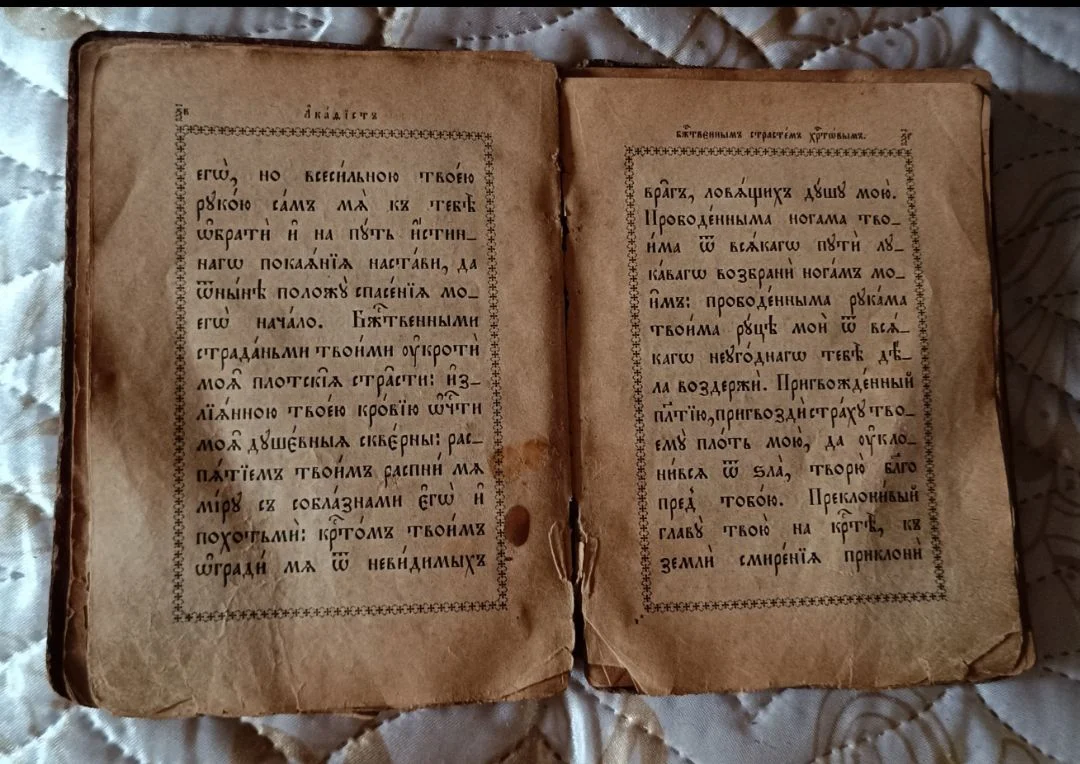 з҃в
А҆ка́ѳїстъ
егѡ̀, но всеси́льною твое́ю
рꙋко́ю са́мъ мѧ̀ къ тебѣ̀
ѡ҆братѝ и҆ на пꙋ́ть и҆́стин_
нагѡ покаѧ́нїѧ наста́ви, да
ѿны́нѣ положꙋ̀ спасе́нїѧ мо_
егѡ̀ нача́ло. Бж҃твенными
страда́ньми твои́ми ᲂу҆кротѝ
моѧ҄ пло́тскїѧ стра̑сти: и҆з_
лїѧ́нною твое́ю кро́вїю ѡ҆чⷭ҇ти
моѧ҄ дꙋшє́вныѧ сквє́рны: рас_
пѧ́тїемъ твои́мъ распни́ мѧ
мі́рꙋ съ собла́знами є҆гѡ̀ и҆
похотьмѝ: крⷭ҇то́мъ твои́мъ
ѡ҆гради́ мѧ ѿ неви́димыхъ
бж҃твєннымъ страстє́мъ хрⷭ҇тѡ́вымъ.
з҃г
вра̑гъ, ловѧ́щихъ дꙋ́шꙋ мою̀.
Прободе́нныма нога́ма тво_
и́ма ѿ всѧ́кагѡ пꙋтѝ лꙋ_
ка́вагѡ возбранѝ нога́мъ мо_
и҄мъ: прободе́нныма рꙋка́ма
твои́ма рꙋ́цѣ моѝ ѿ всѧ́_
кагѡ неꙋго́днагѡ тебѣ̀ дѣ́_
ла воздержѝ. Пригвожде́нный
пло́тїю, пригвоздѝ стра́хꙋ тво_
емꙋ̀ пло́ть мою̀, да ᲂу҆кло_
ни́всѧ ѿ ѕла̀, творю̀ бл҃го
пред̾ тобо́ю. Преклони́вый
главꙋ̀ твою̀ на крⷭ҇тѣ̀, къ
землѝ смире́нїѧ приклонѝ